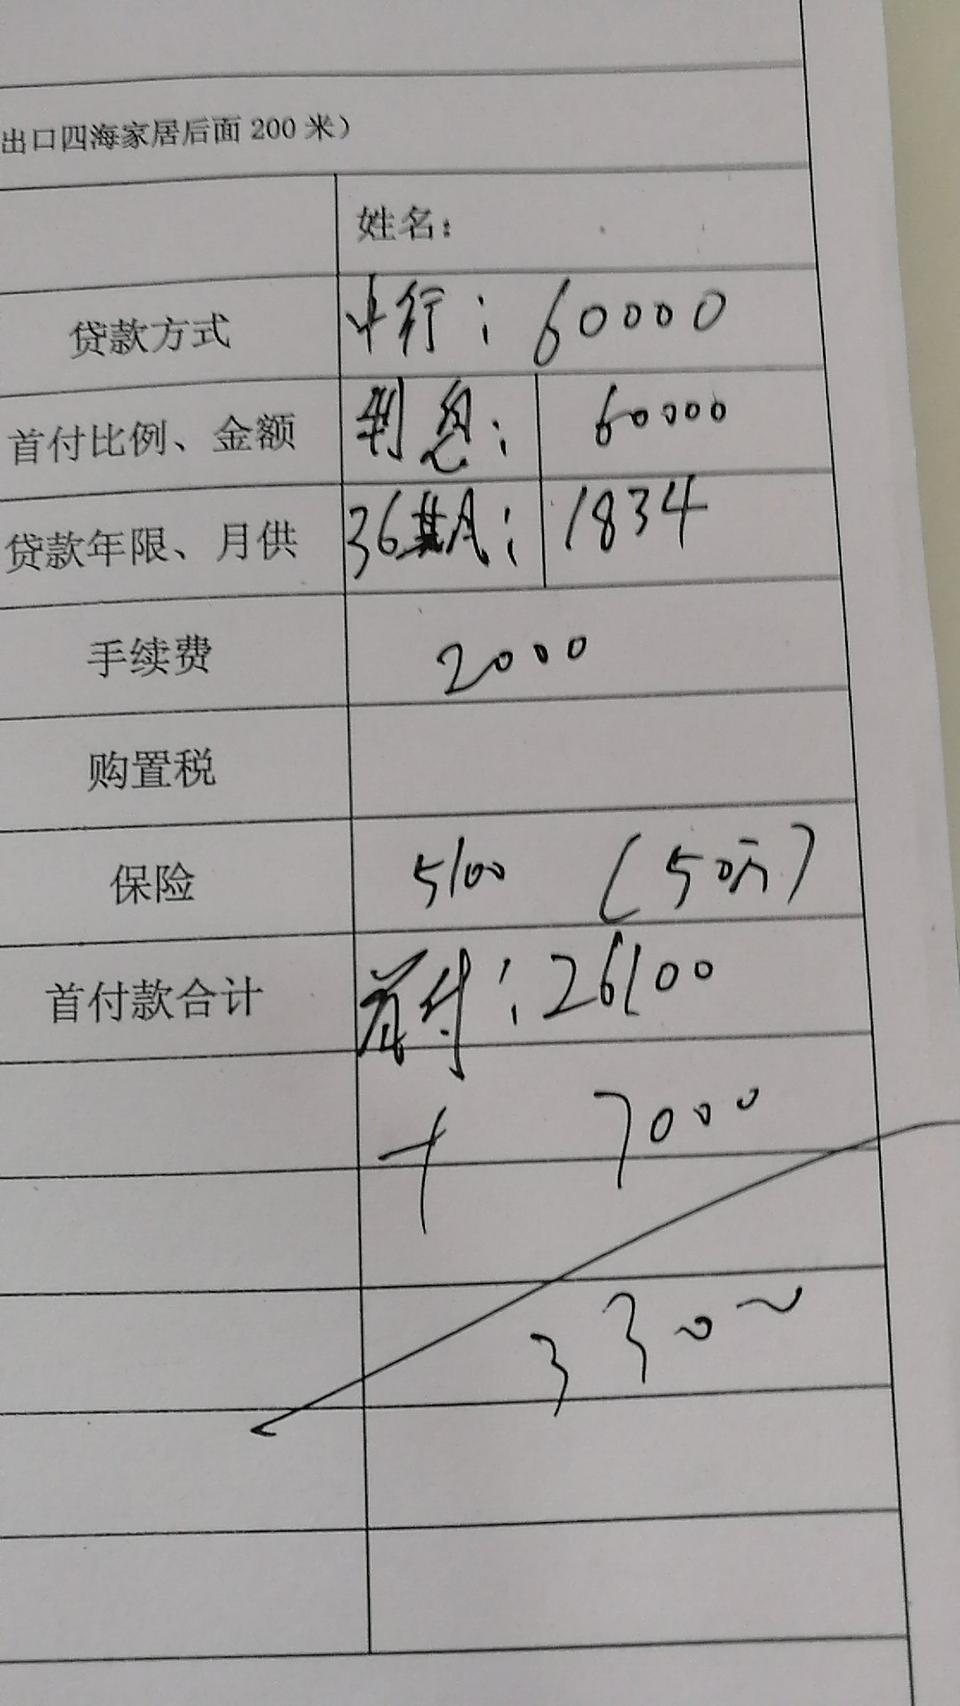 出口四海家居后面 200 米）
姓名：
贷款方式 中行：60000
首付比例、金额 利息： 60000
贷款年限、月供 36期： 1834
手续费 2000
购置税
保险 5100 （50万）
首付款合计 首付：26100
+ 7000